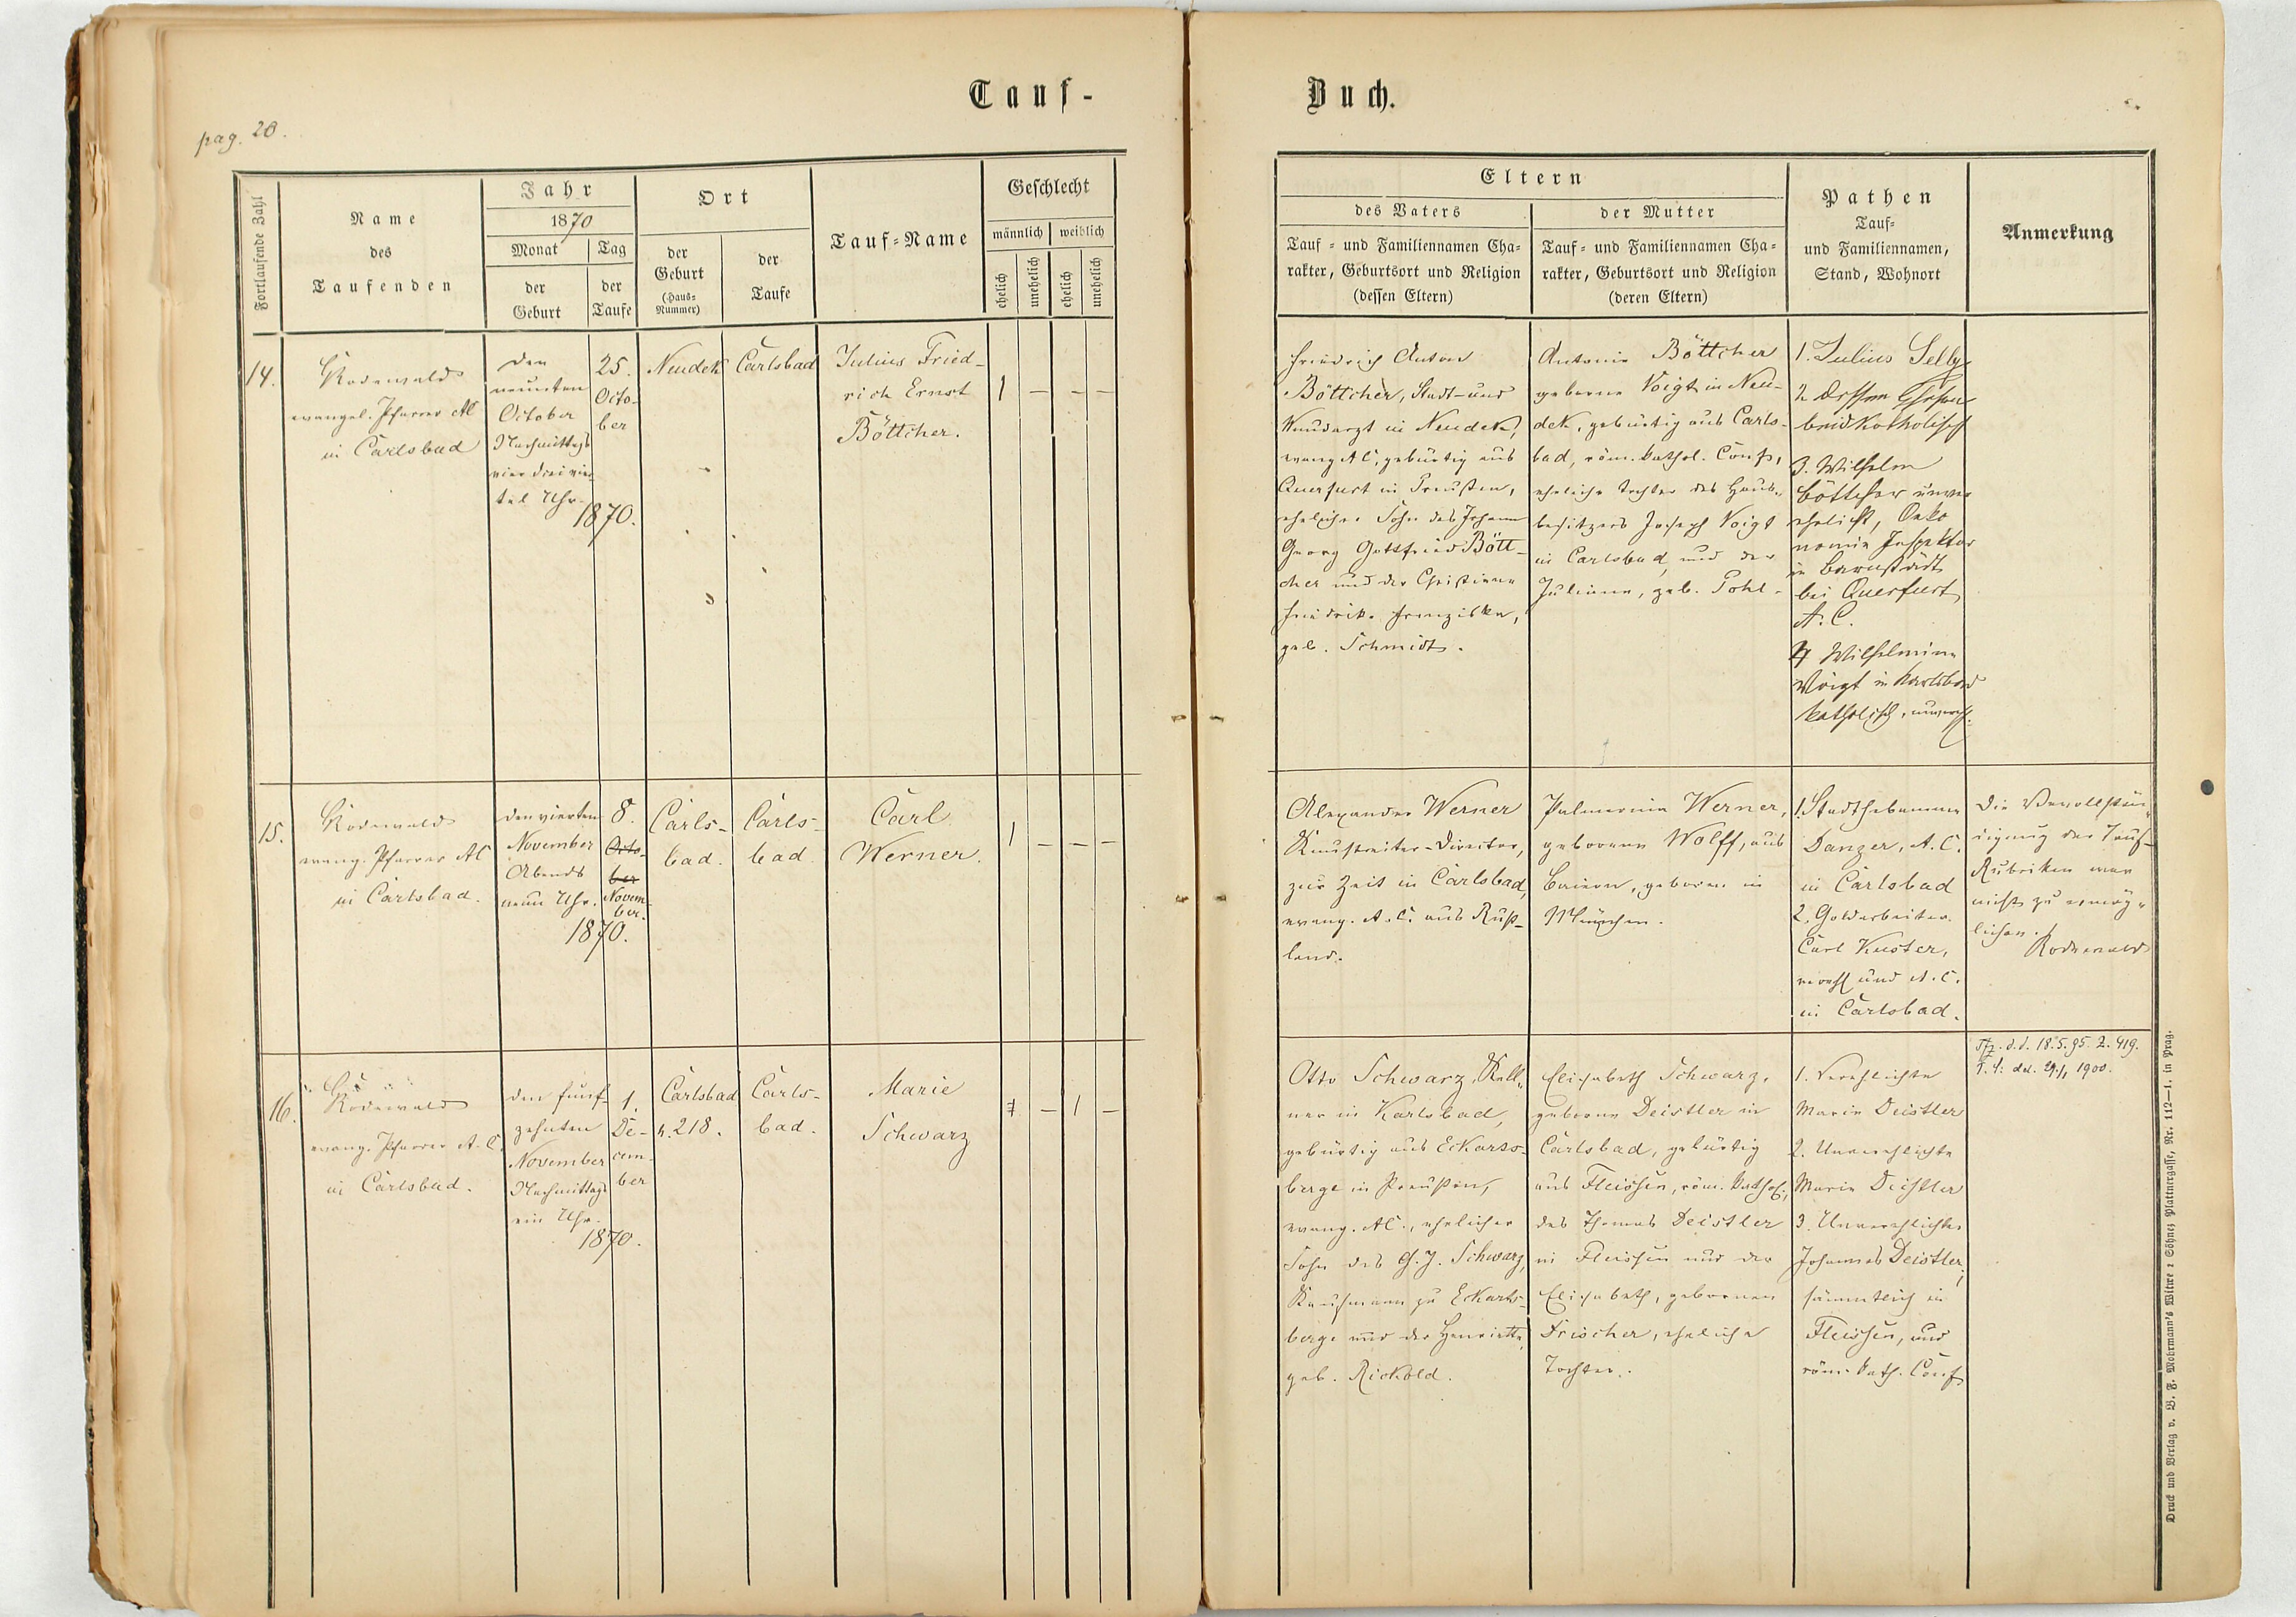 Tauf-
Buch.
pag. 20.
Fortlaufende Zahl
Name
des
Taufenden
Jahr
1870
Monat
Tag
der
Geburt
der
Taufe
Ort
der
Geburt
(Haus-
Nummer)
der
Taufe
Tauf-Name
Geschlecht
männlich
weiblich
ehelich
unehelich
ehelich
unehelich
Eltern
des Vaters
der Mutter
Tauf- und Familiennamen Cha-
rakter, Geburtsort und Religion
(dessen Eltern)
Tauf- und Familiennamen Cha-
rakter, Geburtsort und Religion
(deren Eltern)
Pathen
Tauf-
und Familiennamen,
Stand, Wohnort
Anmerkung
14.
Rodewald
evangel. Pfarrer AC
in Carlsbad
den
neunten
October
Nachmittags
vier drei vier-
tel Uhr.
1870.
25.
Octo-
ber
Neudek
Carlsbad
Julius Fried-
rich Ernst
Böttcher.
1 – – –
Friedrich Anton
Böttcher, Stadt- und
Wundarzt in Neudek,
evang AC, gebürtig aus
Querfurt in Preußen,
ehelicher Sohn des Johann
Georg Gottfried Bött-
cher und der Christiana
Friedrike Franziska,
geb. Schmidt.
Antonie Böttcher
geborne Voigt in Neu-
dek, gebürtig aus Carls-
bad, röm. kathol. Conf,
eheliche Tochter des Haus-
besitzers Joseph Voigt
in Carlsbad, und der
Juliane, geb. Pohl.
1. Julius Selly
2. dessen Ehefrau
beid katholisch
3. Wilhelm
Böttcher unver
ehelicht, Oeko
nomie Inspektor
in Barnstädt
bei Querfurt
A. C.
4 Wilhelmine
Voigt in Karlsbad
katholisch, unvereh.
15.
Rodewald
evang. Pfarrer AC
in Carlsbad.
den vierten
November
Abends
neun Uhr.
1870.
8.
Octo-
ber
Novem-
ber.
Carls-
bad.
Carls-
bad
Carl
Werner.
1 – – –
Alexander Werner
Kunstreiter-Director,
zur Zeit in Carlsbad,
evang. A. C. aus Ruß-
land.
Werner,
geborene Wolff, aus
Baiern, geboren in
München.
1. Stadthebamme
Danzer, A. C.
in Carlsbad
2. Goldarbeiter
Carl Kuster,
A. C.
in Carlsbad.
Die Vervollstän-
digung der Tauf-
Rubriken war
nicht zu ermög-
lichen.
Rodewald
16.
Rodewald
evang. Pfarrer A. C.
in Carlsbad.
den fünf-
zehnten
November
Nachmittags
ein Uhr.
1870.
1.
De-
cem-
ber
Carlsbad
N. 218.
Carls-
bad.
Marie
Schwarz
– 1 –
Otto Schwarz, Kell-
ner in Karlsbad,
gebürtig aus Eckarts-
berge in Preußen,
evang. AC., ehelicher
Sohn des G. J. Schwarz,
Kaufmann zu Eckarts-
berge und der Henriette,
geb. Rickold.
Elisabeth Schwarz,
geborne Deistler in
Carlsbad, gebürtig
aus Fleissen, röm. kathol.,
des Thomas Deistler
in Fleissen und der
Elisabeth, gebornen
Frischer, eheliche
Tochter.
1. Verehlichte
Marie Deistler
2. Unverehlichte
Marie Deistler
3. Unverehlichter
Johannes Deistler,
sämmtlich in
Fleissen, und
röm. kath. Conf
d.d. 18.5.95. Z. 419.
1900.
Druck und Verlag v. B. F. Mohrmann's Witwe & Söhne, Plattnergasse, Nr. 112—1. in Prag.